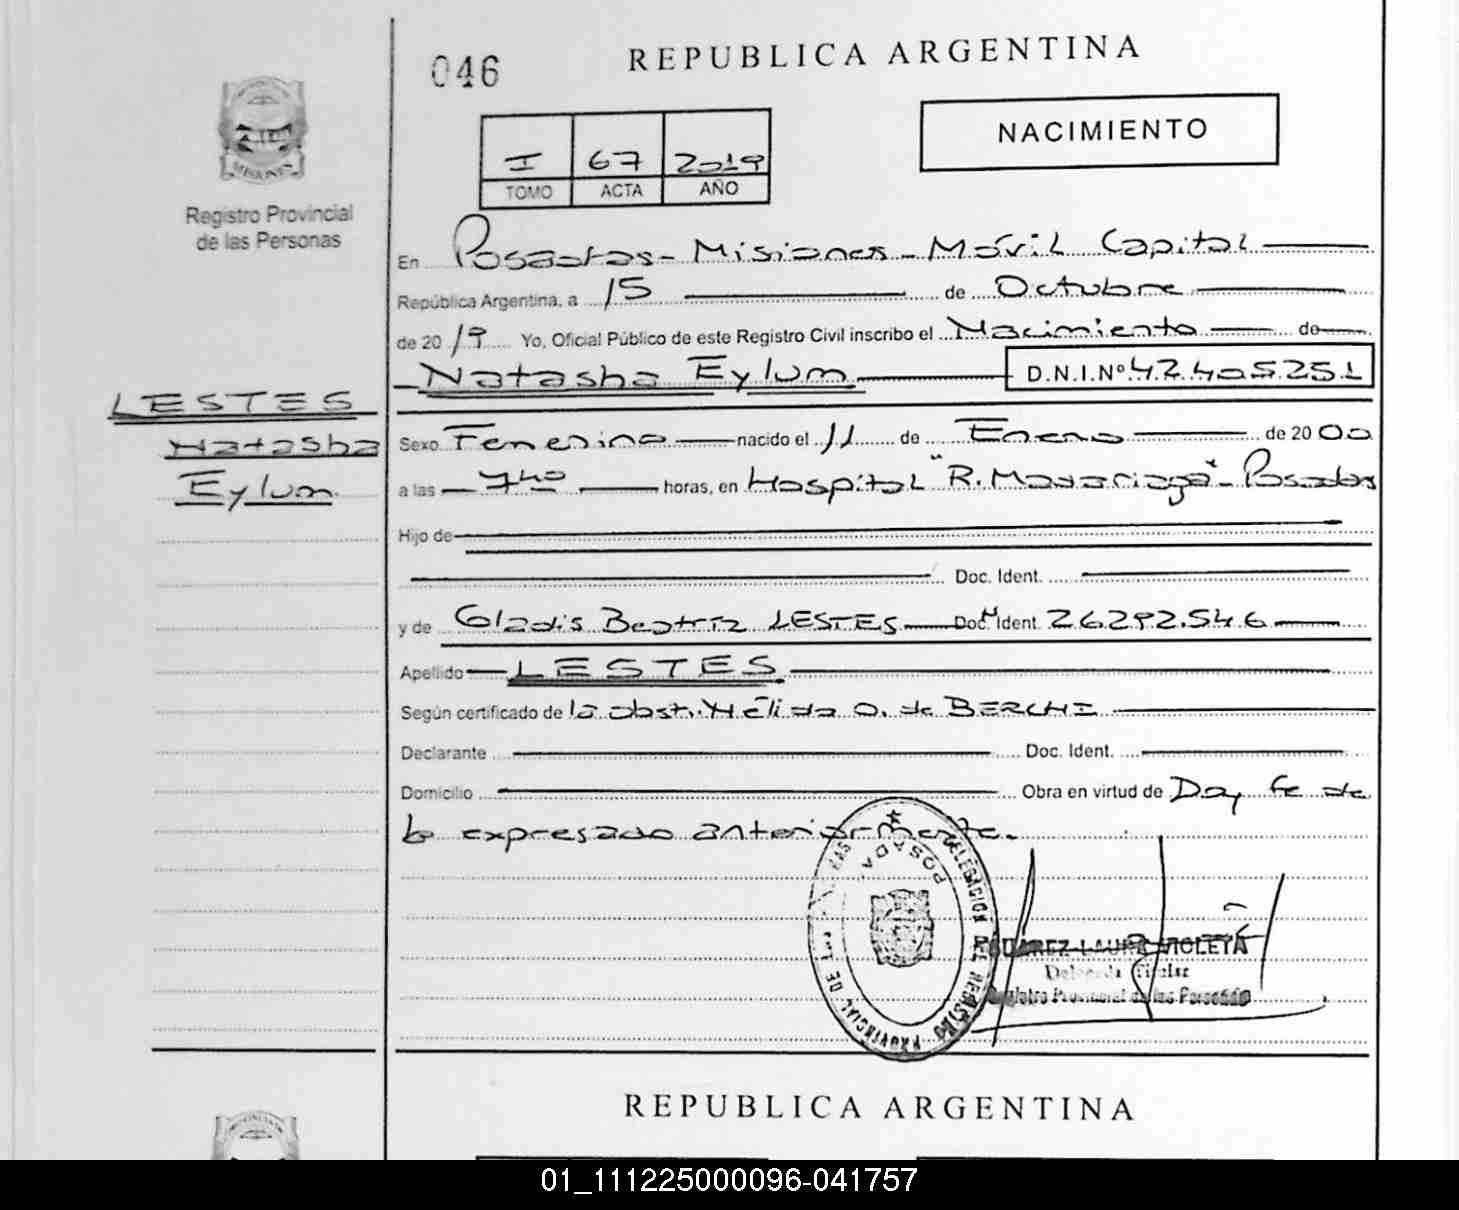 046
REPUBLICA ARGENTINA
NACIMIENTO
I 67 2019
TOMO ACTA AÑO
MISIONES
Registro Provincial
de las Personas
En Posadas - Misiones - Móvil Capital
República Argentina, a 15 de Octubre
de 2019 Yo, Oficial Público de este Registro Civil inscribo el Nacimiento de
Natasha Eylum D.N.I.Nº 42.405.251
LESTES
Natasha
Eylum
Sexo Femenino nacido el 11 de Enero de 2000
a las 7 40 horas, en Hospital "R. Madariaga" - Posadas
Hijo de
Doc. Ident.
y de Gladis Beatriz LESTES Doc. Ident. 26.292.546
Apellido LESTES
Según certificado de la obst. Nélida O. de BERCHI
Declarante Doc. Ident.
Domicilio Obra en virtud de Doy fe de
lo expresado anteriormente.
DELEGACION DEL REGISTRO PROVINCIAL DE LAS
POSADAS
SUAREZ LAURA VIOLETA
Delegada Titular
Registro Provincial de las Personas
REPUBLICA ARGENTINA
01_111225000096-041757